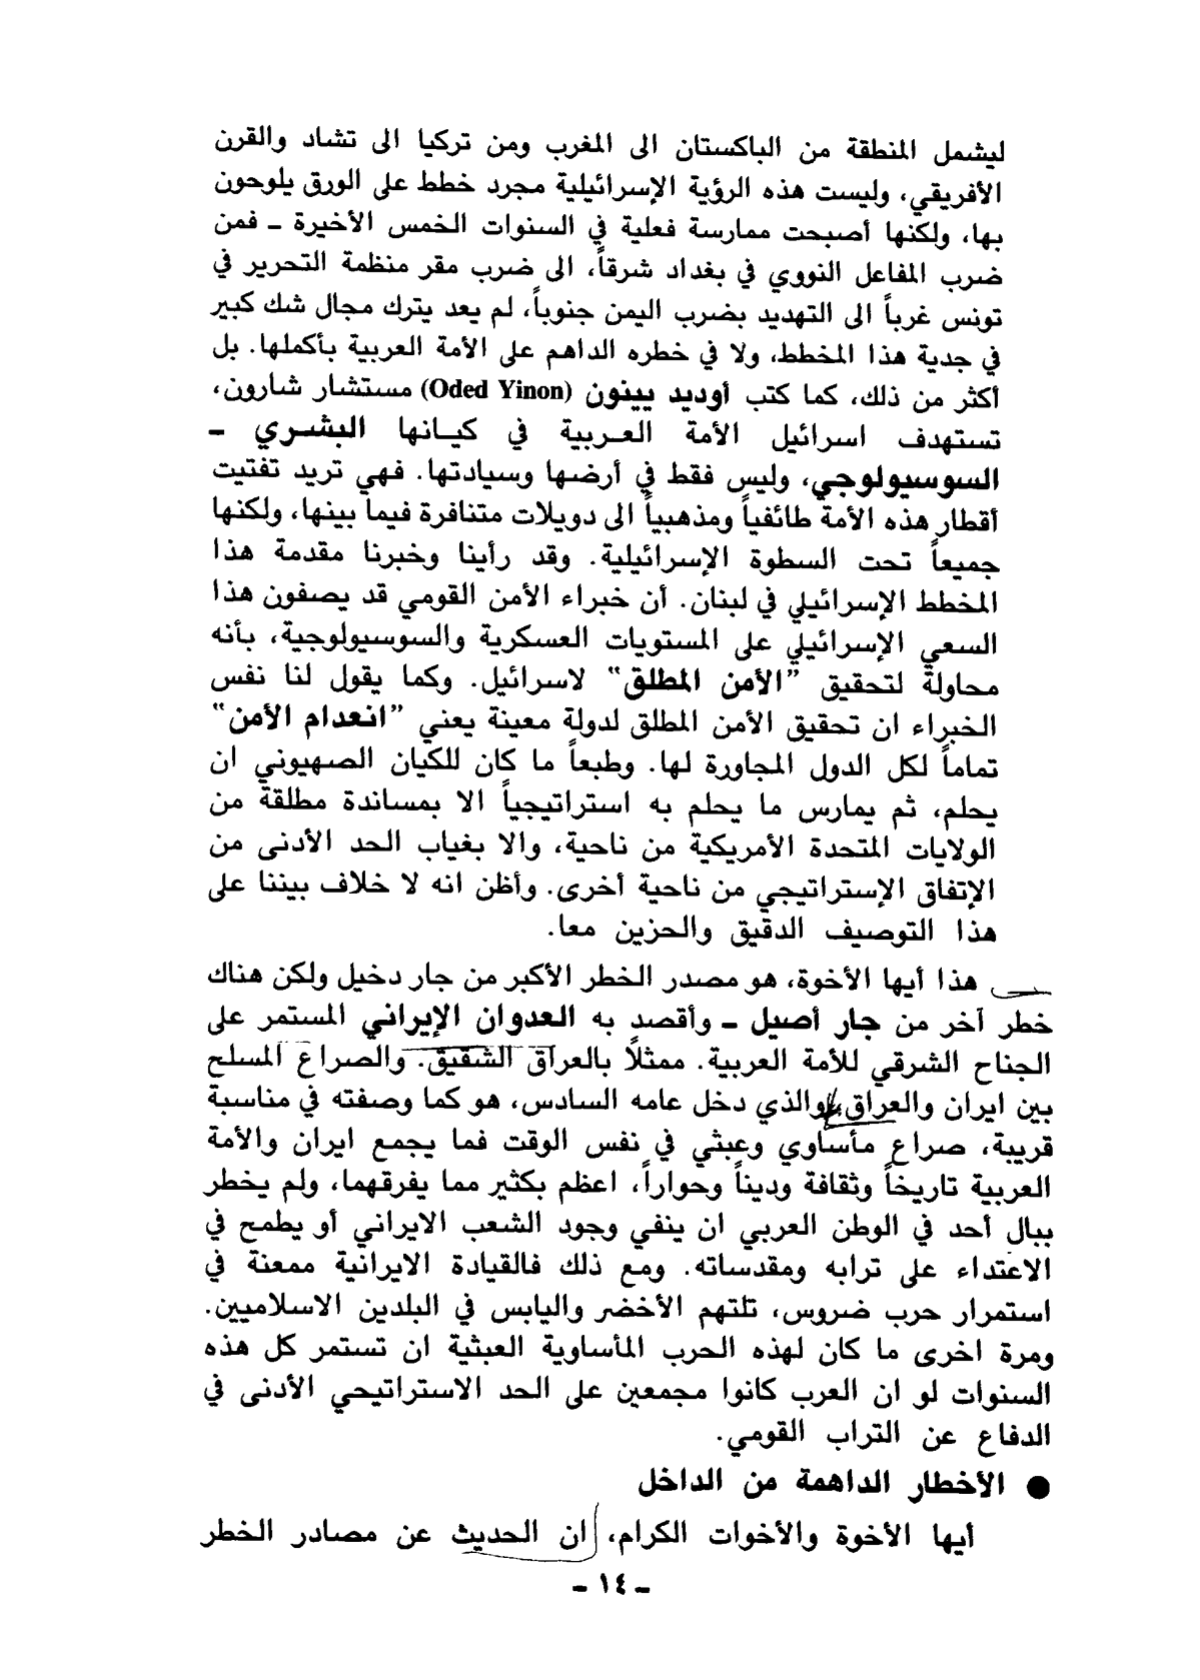 ليشمل المنطقة من الباكستان الى المغرب ومن تركيا الى تشاد والقرن
الأفريقي، وليست هذه الرؤية الإسرائيلية مجرد خطط على الورق يلوحون
بها، ولكنها أصبحت ممارسة فعلية في السنوات الخمس الأخيرة ـ فمن
ضرب المفاعل النووي في بغداد شرقاً، الى ضرب مقر منظمة التحرير في
تونس غرباً الى التهديد بضرب اليمن جنوباً، لم يعد يترك مجال شك كبير
في جدية هذا المخطط، ولا في خطره الداهم على الأمة العربية بأكملها. بل
أكثر من ذلك، كما كتب أوديد يينون (Oded Yinon) مستشار شارون،
تستهدف اسرائيل الأمة العربية في كيانها البشري ـ
السوسيولوجي، وليس فقط في أرضها وسيادتها. فهي تريد تفتيت
أقطار هذه الأمة طائفياً ومذهبياً الى دويلات متنافرة فيما بينها، ولكنها
جميعاً تحت السطوة الإسرائيلية. وقد رأينا وخبرنا مقدمة هذا
المخطط الإسرائيلي في لبنان. أن خبراء الأمن القومي قد يصفون هذا
السعي الإسرائيلي على المستويات العسكرية والسوسيولوجية، بأنه
محاولة لتحقيق ”الأمن المطلق“ لاسرائيل. وكما يقول لنا نفس
الخبراء ان تحقيق الأمن المطلق لدولة معينة يعني ”انعدام الأمن“
تماماً لكل الدول المجاورة لها. وطبعاً ما كان للكيان الصهيوني ان
يحلم، ثم يمارس ما يحلم به استراتيجياً الا بمساندة مطلقة من
الولايات المتحدة الأمريكية من ناحية، والا بغياب الحد الأدنى من
الإتفاق الإستراتيجي من ناحية أخرى. وأظن انه لا خلاف بيننا على
هذا التوصيف الدقيق والحزين معا.
هذا أيها الأخوة، هو مصدر الخطر الأكبر من جار دخيل ولكن هناك
خطر آخر من جار أصيل ـ وأقصد به العدوان الإيراني المستمر على
الجناح الشرقي للأمة العربية. ممثلاً بالعراق الشقيق. والصراع المسلح
بين ايران والعراق والذي دخل عامه السادس، هو كما وصفته في مناسبة
قريبة، صراع مأساوي وعبثي في نفس الوقت فما يجمع ايران والأمة
العربية تاريخاً وثقافة وديناً وحواراً، اعظم بكثير مما يفرقهما، ولم يخطر
ببال أحد في الوطن العربي ان ينفي وجود الشعب الايراني أو يطمح في
الاعتداء على ترابه ومقدساته. ومع ذلك فالقيادة الايرانية ممعنة في
استمرار حرب ضروس، تلتهم الأخضر واليابس في البلدين الاسلاميين.
ومرة اخرى ما كان لهذه الحرب المأساوية العبثية ان تستمر كل هذه
السنوات لو ان العرب كانوا مجمعين على الحد الاستراتيجي الأدنى في
الدفاع عن التراب القومي.
● الأخطار الداهمة من الداخل
أيها الأخوة والأخوات الكرام، ان الحديث عن مصادر الخطر
ـ ١٤ ـ